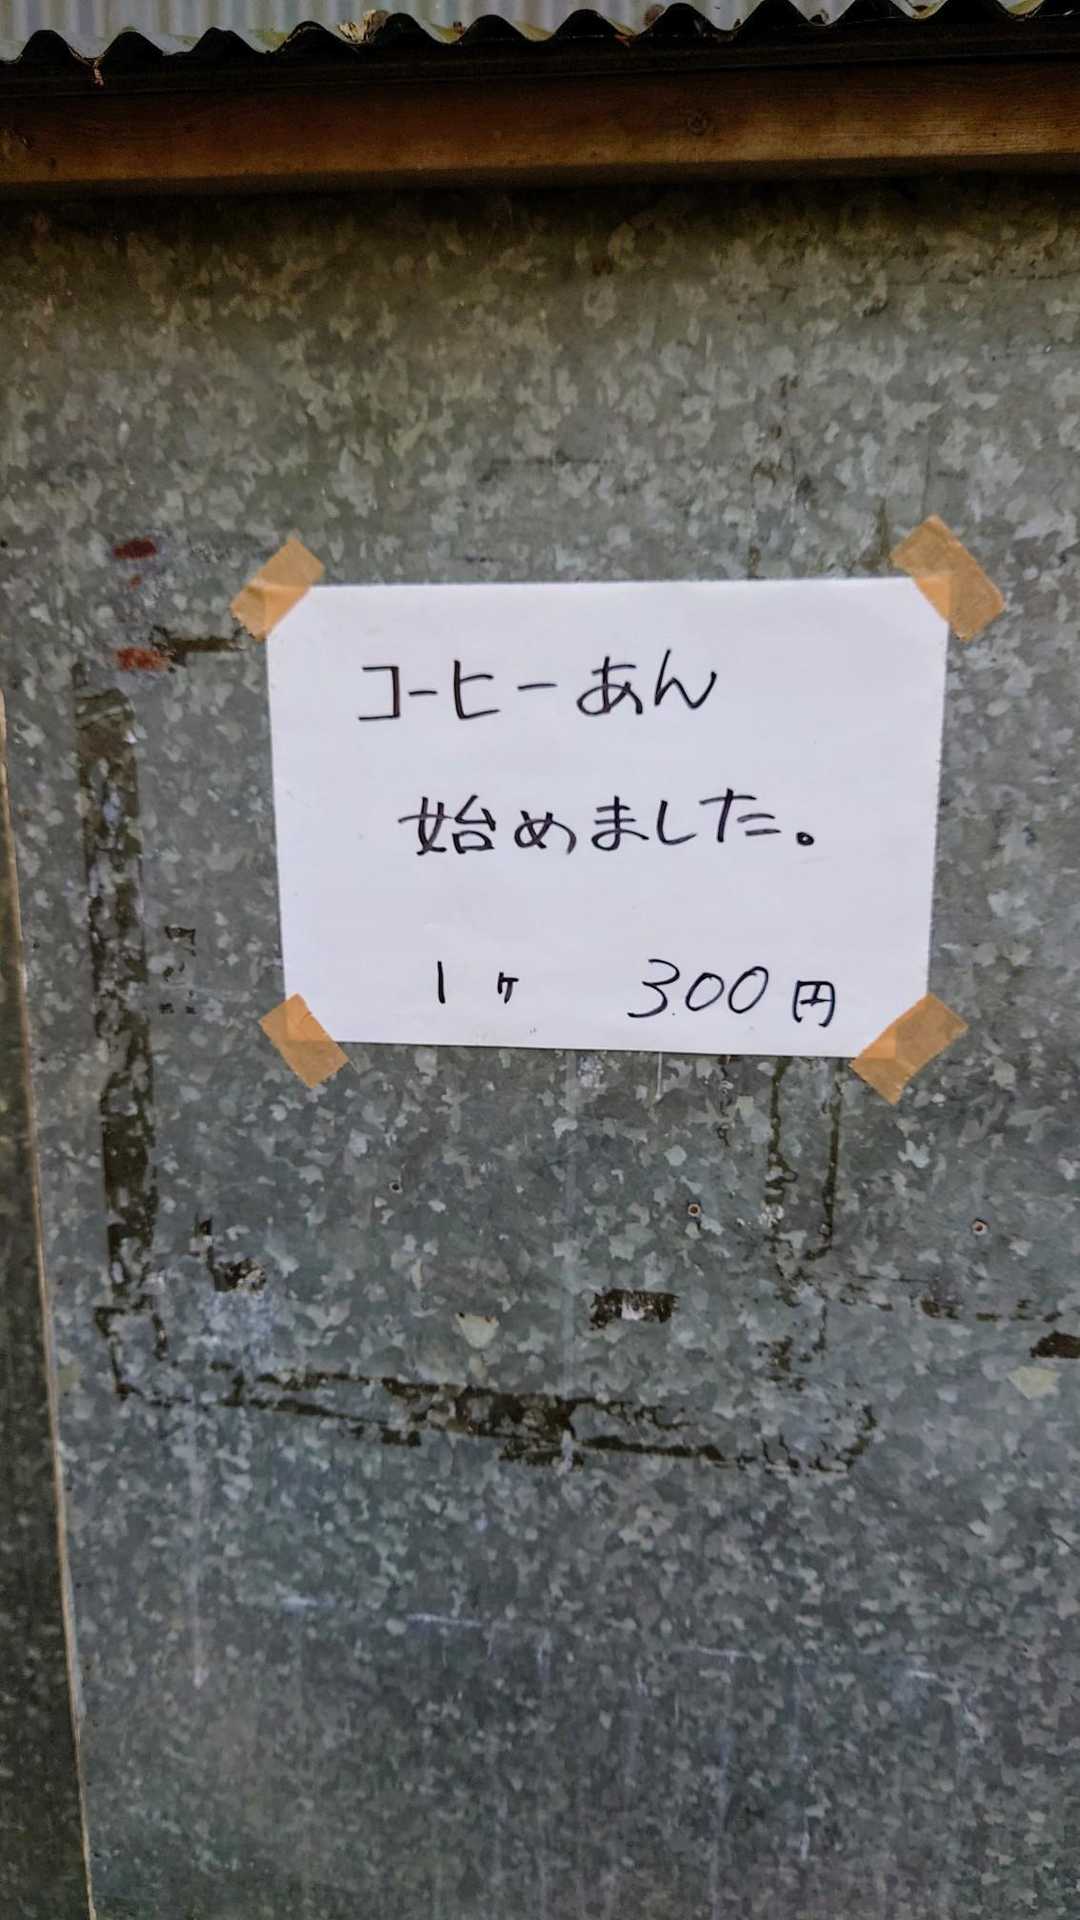 コーヒーあん
始めました。
1ヶ 300円